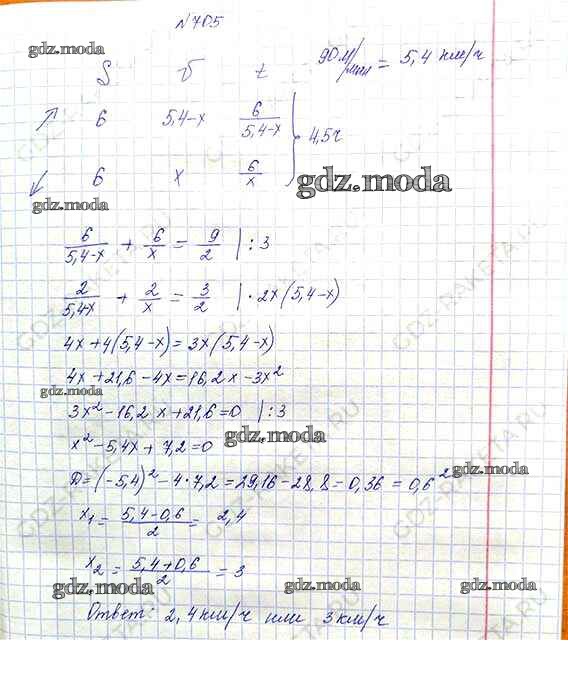 №705
gdz.moda
S v t 90 м/мин = 5,4 км/ч
↗ 6 5,4-x 6/(5,4-x)
} 4,5ч
↙ 6 x 6/x
gdz.moda
gdz.moda
6/(5,4-x) + 6/x = 9/2 | :3
2/(5,4x) + 2/x = 3/2 | · 2x(5,4-x)
4x+4(5,4-x)=3x(5,4-x)
4x+21,6-4x=16,2x-3x²
gdz.moda
3x²-16,2x+21,6=0 | :3
x²-5,4x+7,2=0
gdz.moda
gdz.moda
D=(-5,4)²-4·7,2=29,16-28,8=0,36=0,6²
x₁=(5,4-0,6)/2=2,4
x₂=(5,4+0,6)/2=3
gdz.moda
gdz.moda
gdz.moda
Ответ: 2,4км/ч или 3км/ч
GDZ-RAKETA.RU